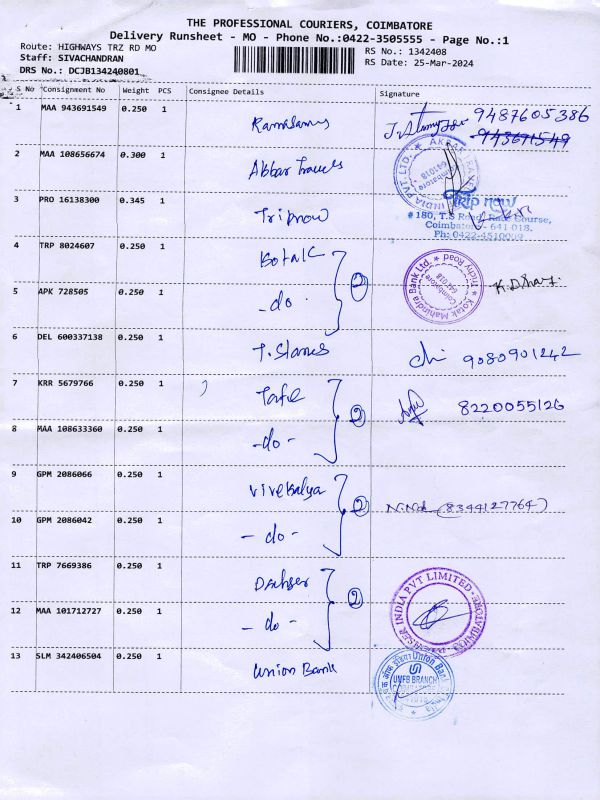 THE PROFESSIONAL COURIERS, COIMBATORE
Delivery Runsheet - MO - Phone No.:0422-3505555 - Page No.:1
Route: HIGHWAYS TRZ RD MO
RS No.: 1342408
Staff: SIVACHANDRAN
RS Date: 25-Mar-2024
DRS No.: DCJB134240801
S No Consignment No Weight PCS Consignee Details Signature
1 MAA 943691549 0.250 1 9487605386
943691549
2 MAA 108656674 0.300 1 Akbar Travels
INDIA PVT. LTD. Coimbatore 641018
3 PRO 16138300 0.345 1 Tripnow
Trip now
#180, T.S Road, Race Course,
Coimbatore - 641 018.
Ph: 0422-4510009
4 TRP 8024607 0.250 1 Kotak
2
Kotak Mahindra Bank Ltd. Trichy Road Coimbatore 641018
5 APK 728505 0.250 1 -do
6 DEL 600337138 0.250 1 T. Stanes 9080901242
7 KRR 5679766 0.250 1 Tafe 8220055126
2
8 MAA 108633360 0.250 1 -do-
9 GPM 2086066 0.250 1 (8344127764)
2
10 GPM 2086042 0.250 1 -do-
11 TRP 7669386 0.250 1
2
INDIA PVT LIMITED COIMBATORE
12 MAA 101712727 0.250 1 -do-
13 SLM 342406504 0.250 1 Union Bank
Union Bank
UMFB BRANCH